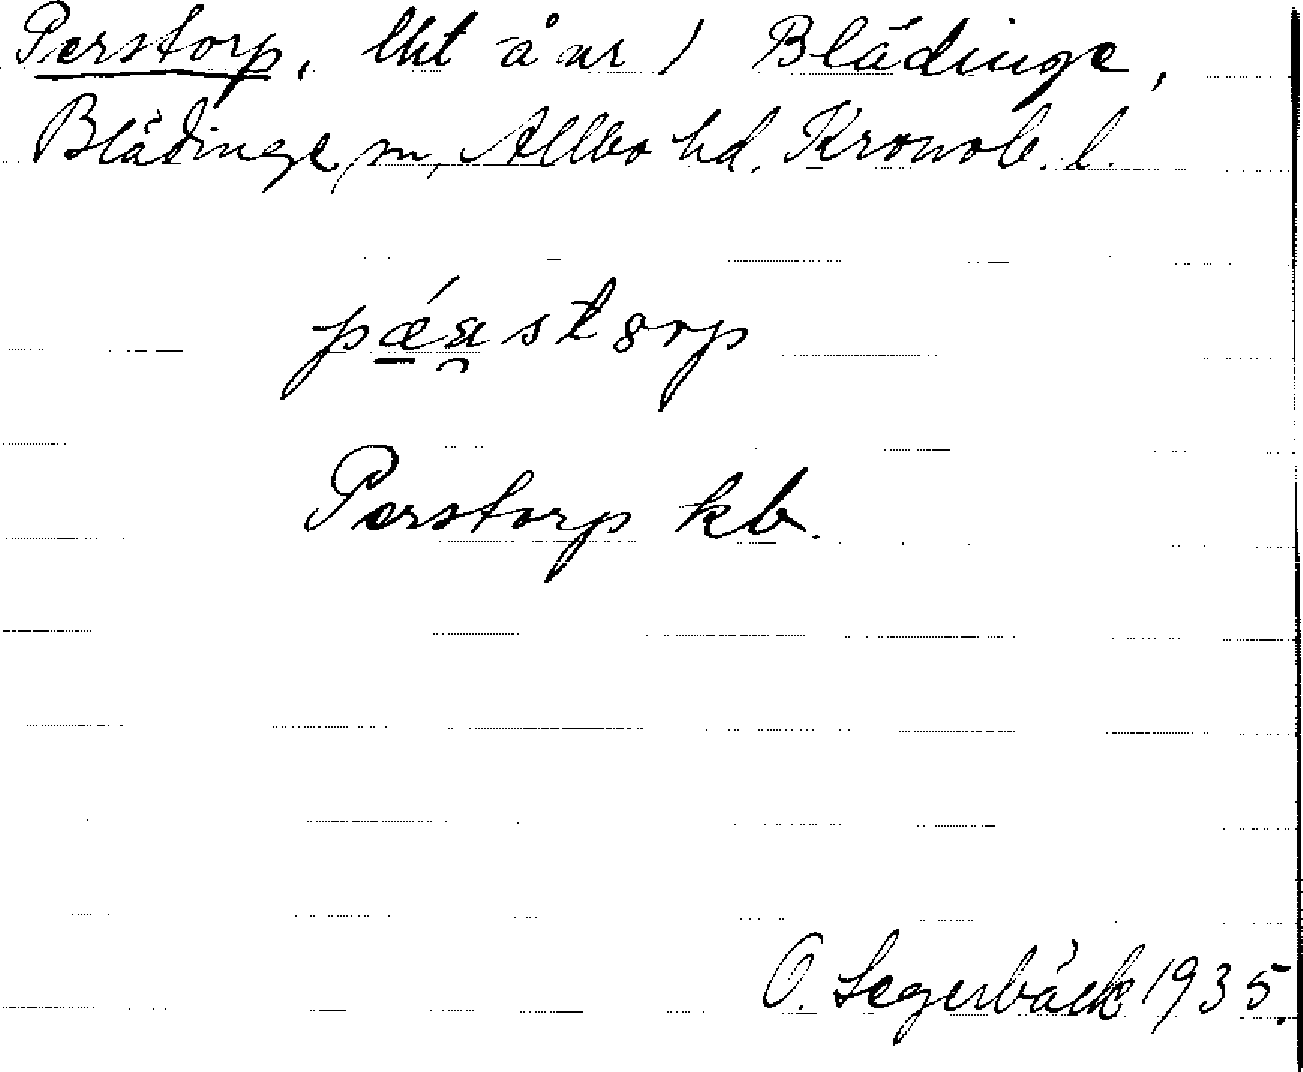 Perstorp, lht å nr 1 Blädinge,
Blädinge sn, Allbo hd. Kronob. l.
pǽa̯storp
Perstorp kb.
O. Segerbäck 1935.